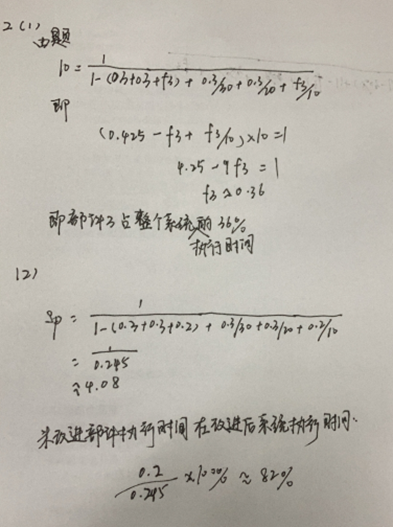 2 (1)
由题
10 = 1 / (1-(0.3+0.3+f3) + 0.3/30 + 0.3/20 + f3/10)
即
(0.425 - f3 + f3/10) × 10 = 1
4.25 - 9f3 = 1
f3 ≈ 0.36
即部件3占整个系统的36%
执行时间
(2)
Sp = 1 / (1-(0.3+0.3+0.2) + 0.3/30 + 0.3/20 + 0.2/10)
= 1 / 0.245
≈ 4.08
未改进部件执行时间在改进后系统执行时间.
0.2 / 0.245 × 100% ≈ 82%